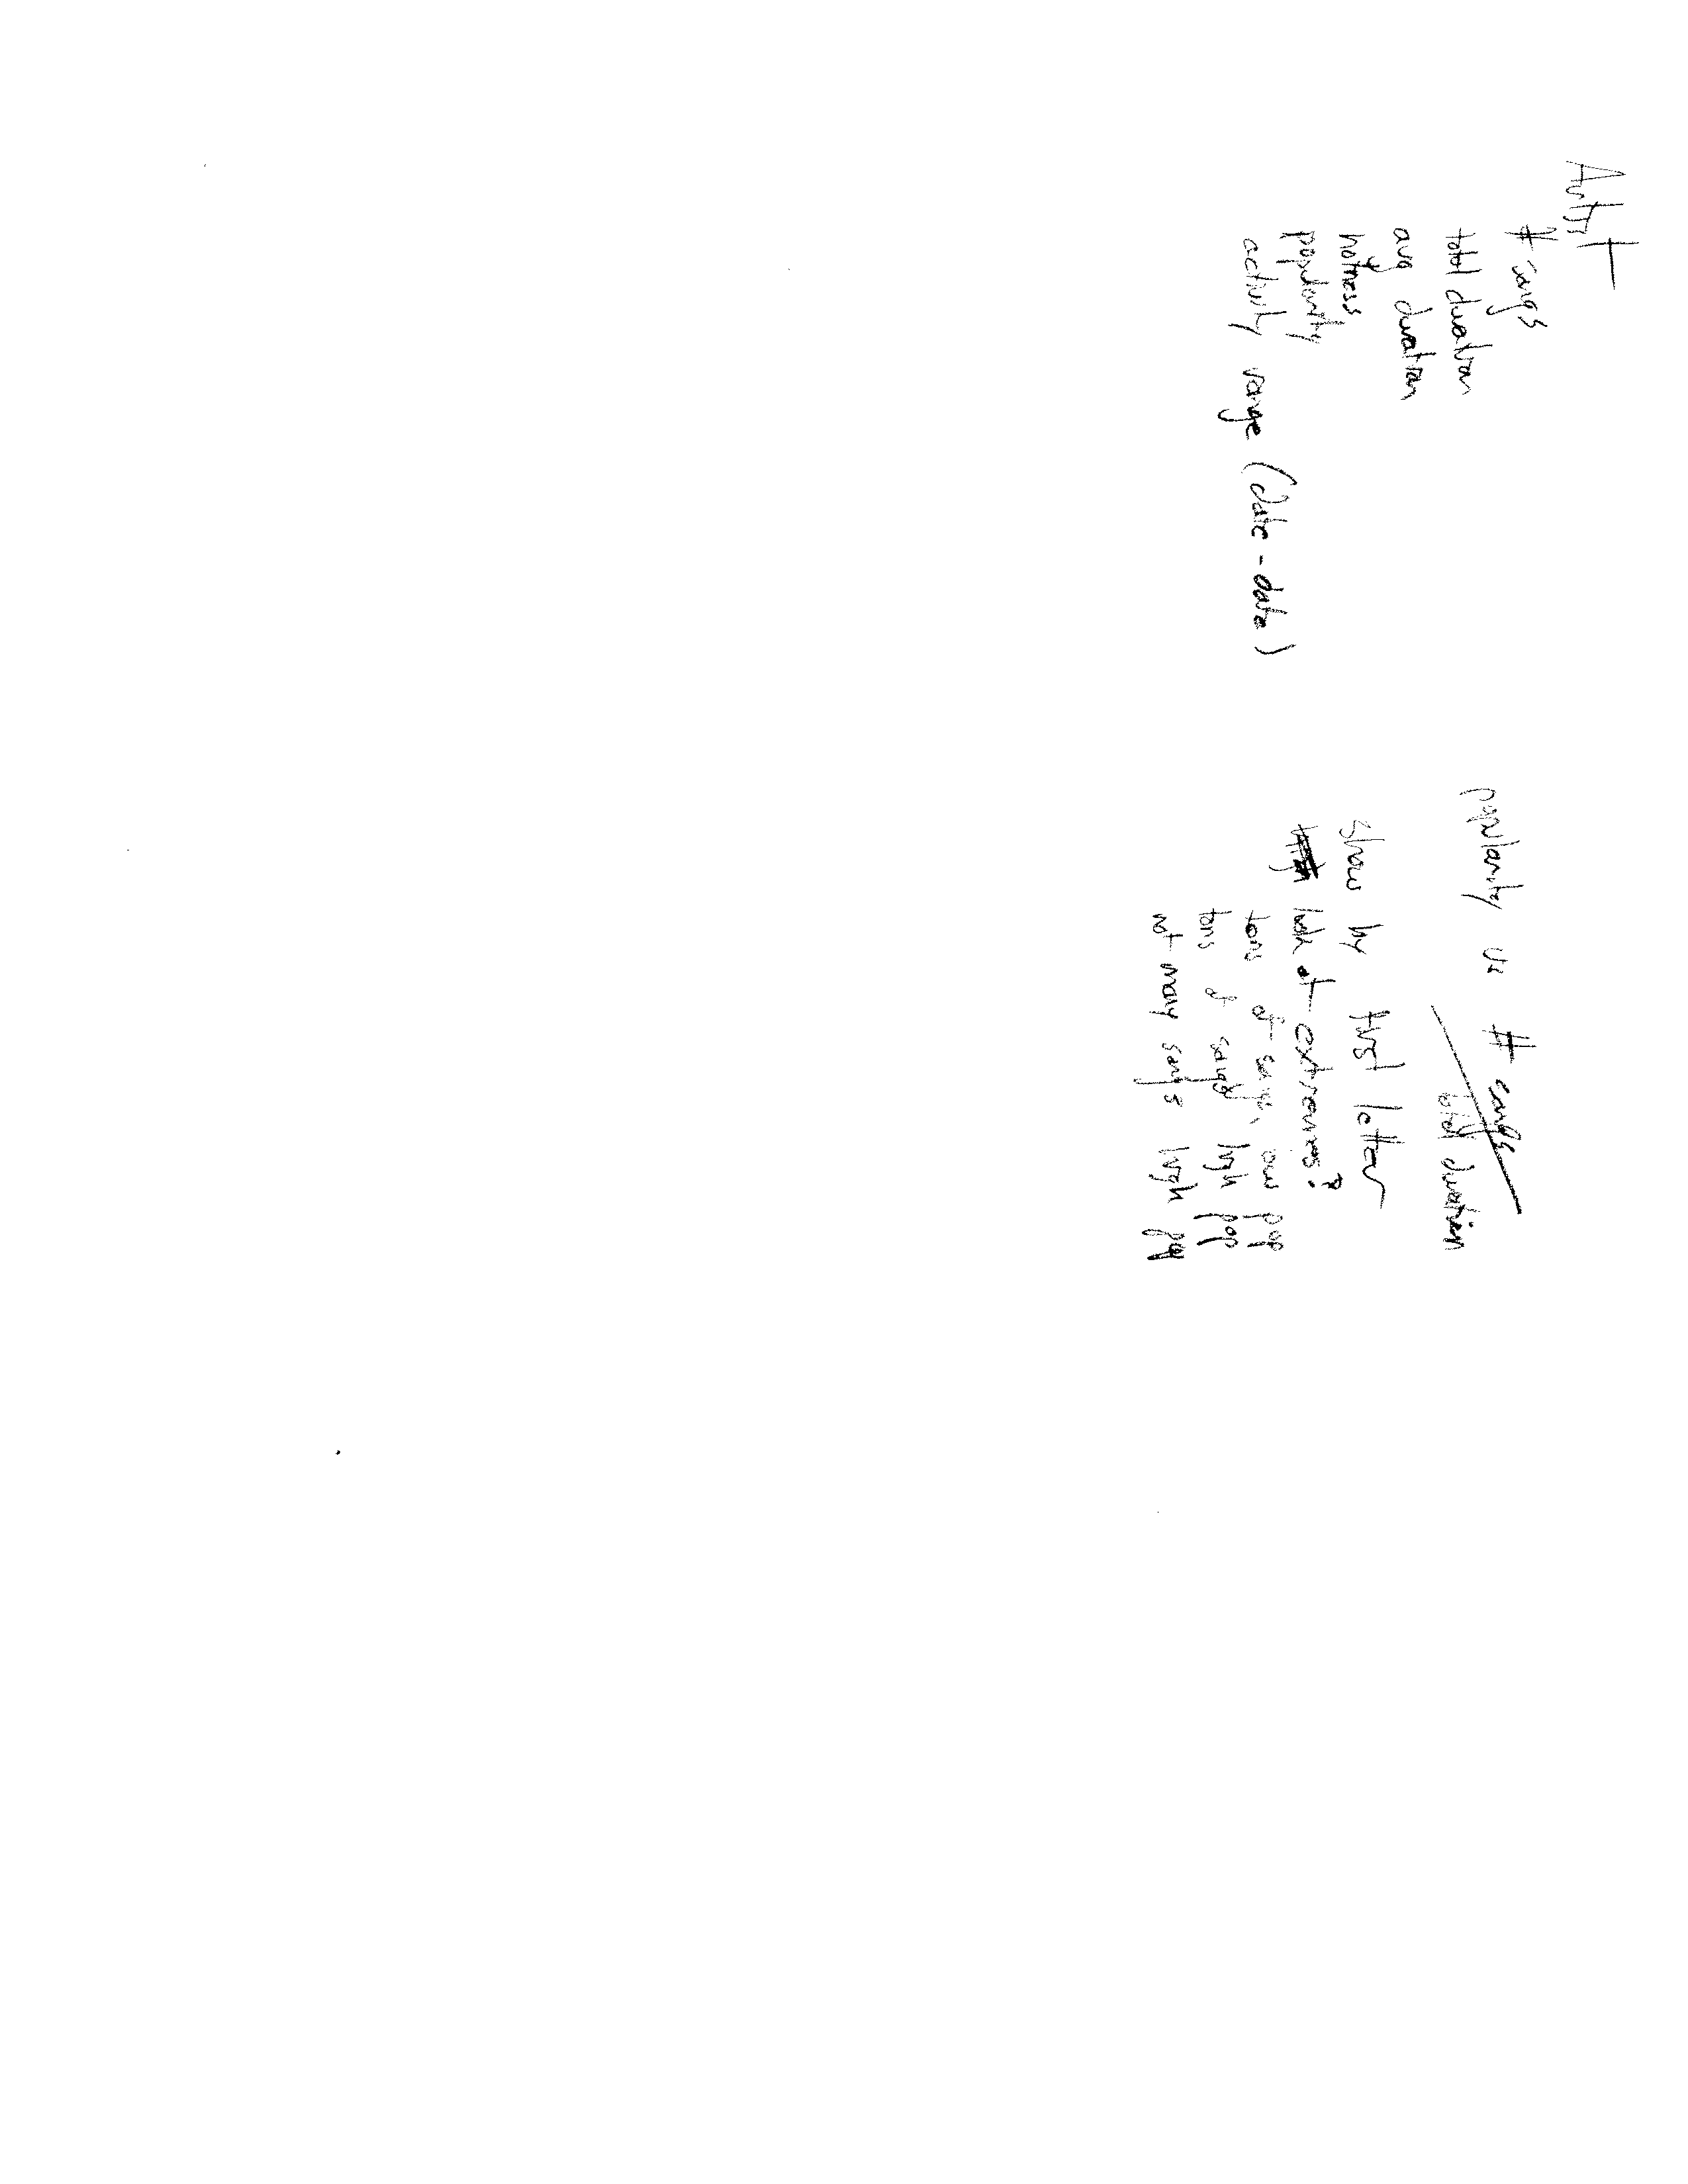 Artist
# songs
total duration
avg duration
hotness
popularity
activity range (date - date)
popularity vs # songs
total duration
show by first letter
look at extremes?
tons of songs, low pop
tons of songs high pop
not many songs high pop